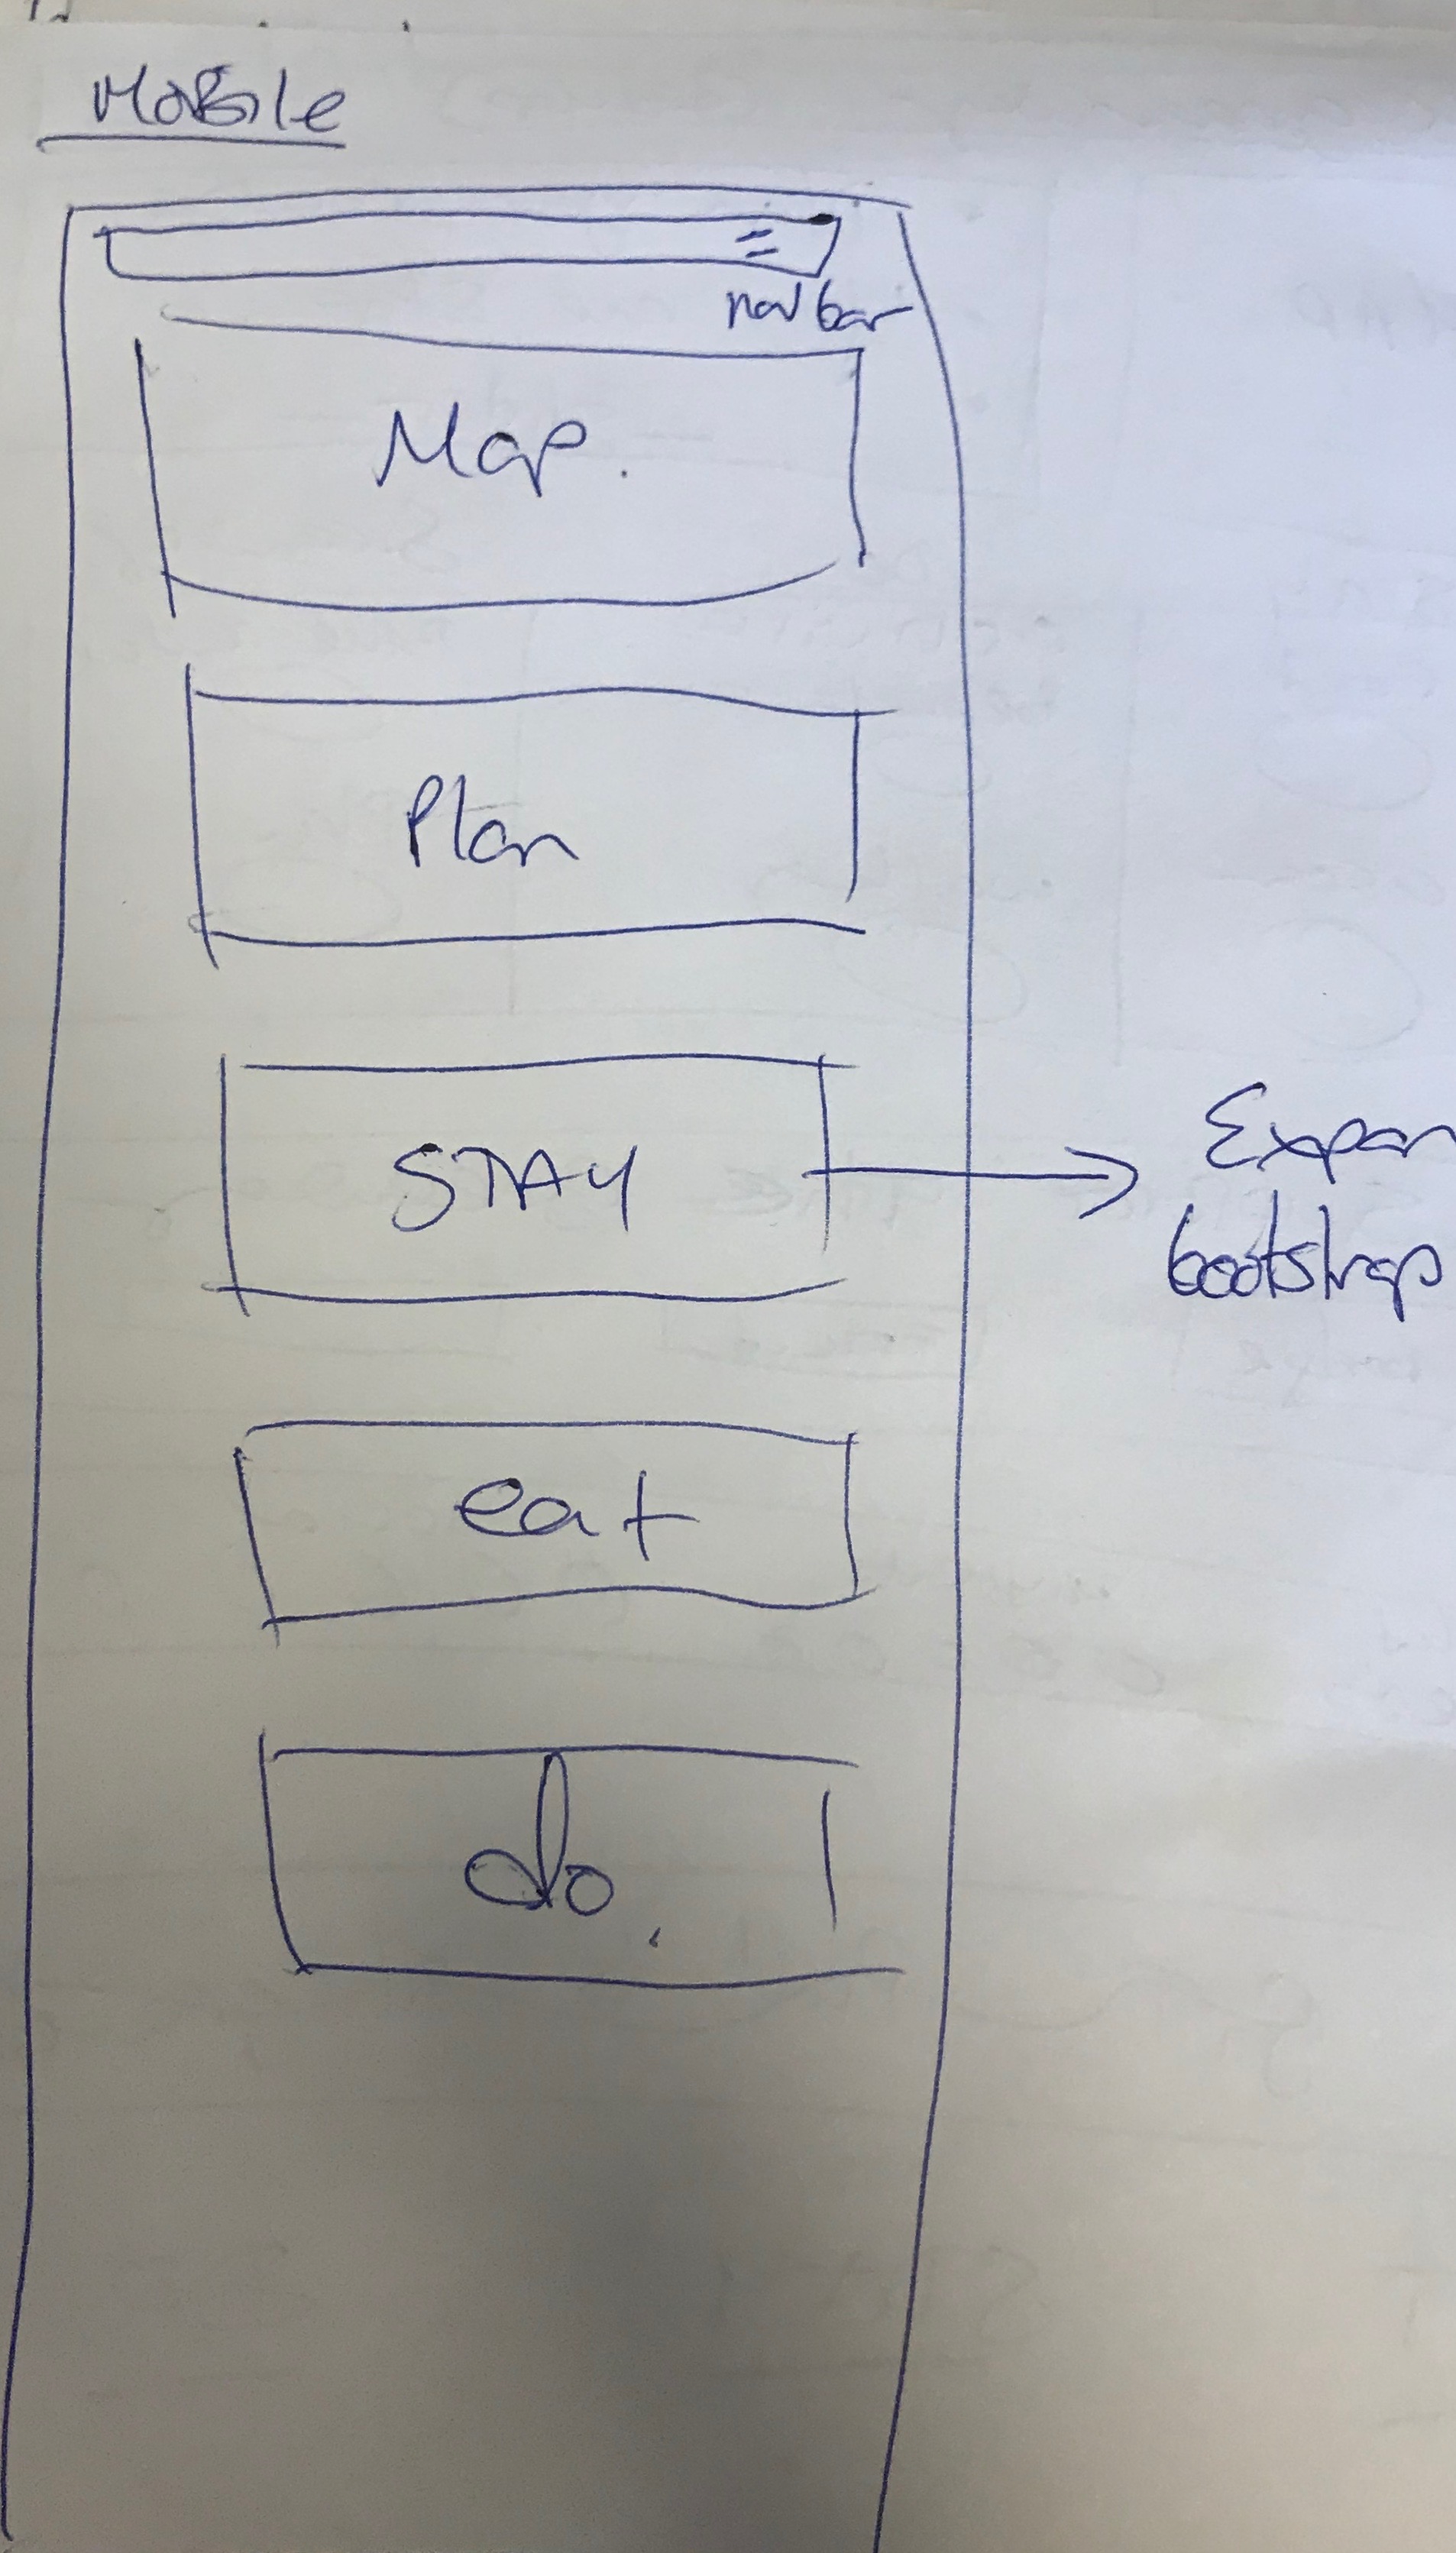 Mobile
nav bar
Map.
Plan
STAY
Expan
bootstrap
eat
do.